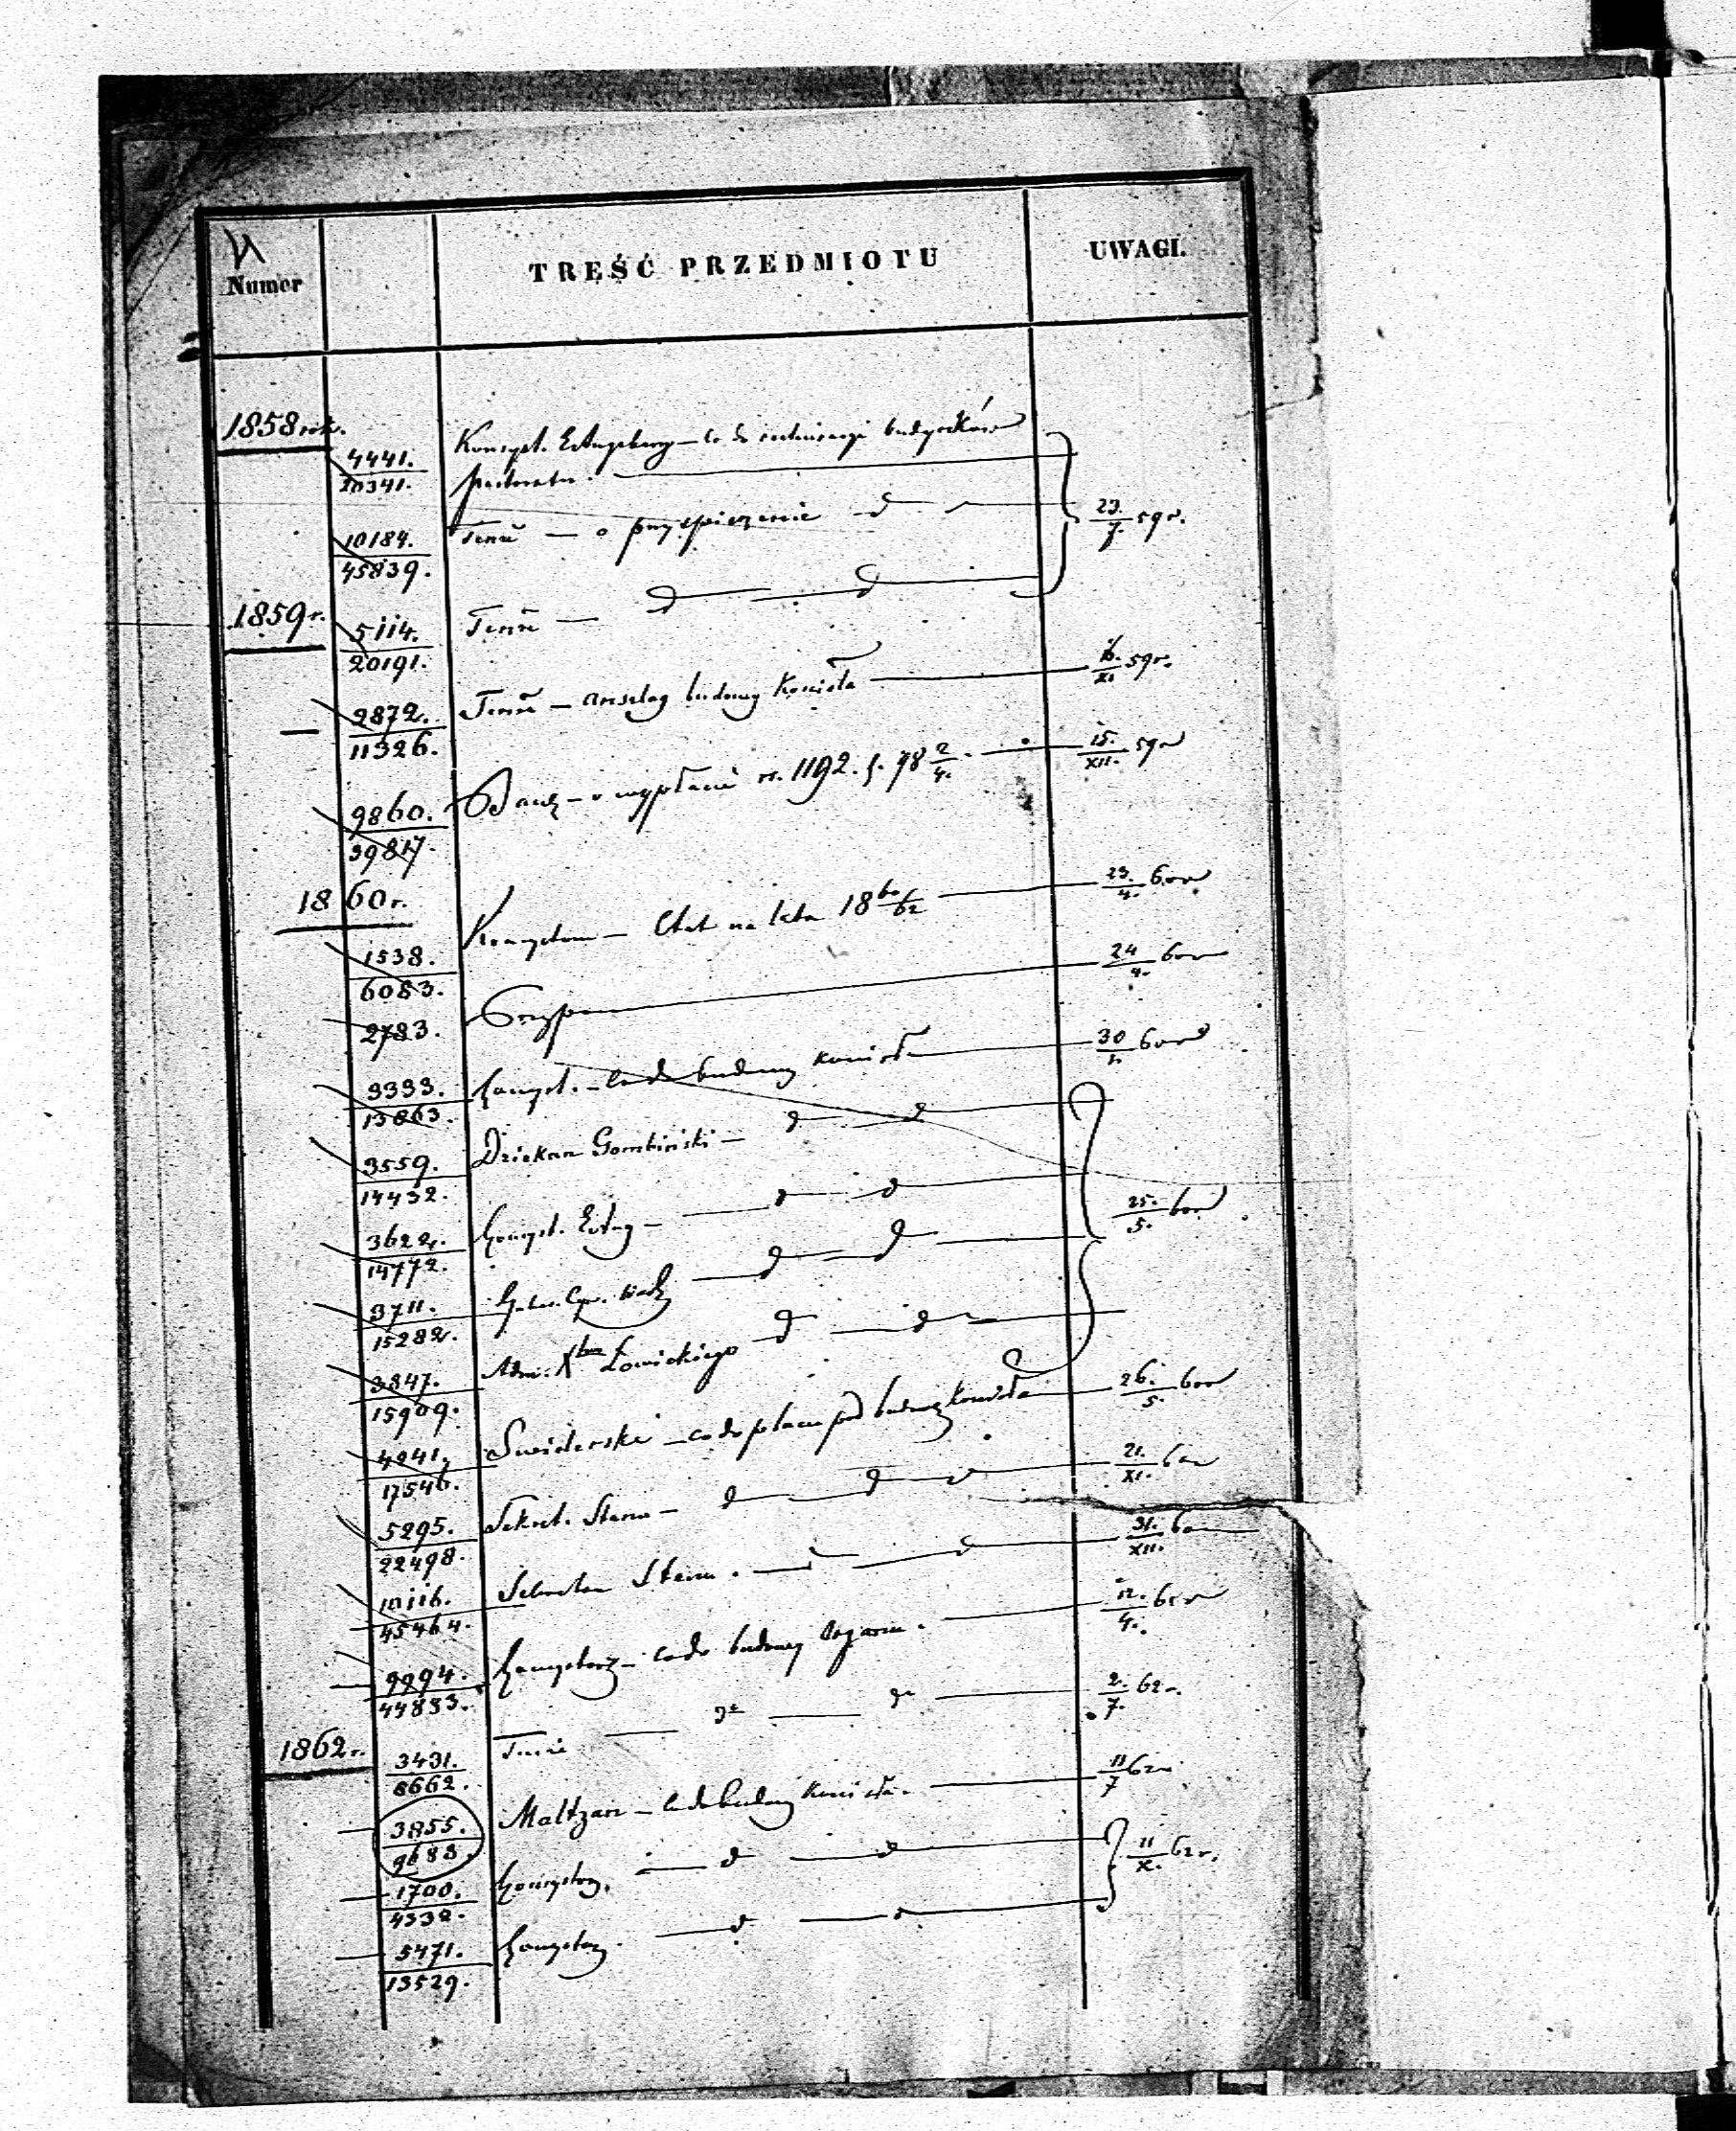 Numer
TREŚĆ PRZEDMIOTU
UWAGI.
1858
4441.
20341.
Konsyst. Ewang — co do budynków
10184.
45839.
Tenże — o przyspieszenie d
23./7. 59 r.
1859 r.
5114.
20191.
Tenże — d — d
2872.
11326.
Tenże — anszlag budowy Kościoła — 16./XI. 59 r.
9860.
39817.
— o wypłacenie rs. 1192. — 15./XII. 59 r
1860 r.
1538.
6083.
— Etat na lata 18 60/62 — 23./4. 60 r
2783.
24/4. 60 r
3333.
13863.
Konsyst. — co do budowy kościoła — 30/4. 60 r
3559.
14432.
Dziekan Gombiński — d — d
3622.
14772.
Konsyst. Ewang — d — d
25./5. 60 r
3711.
15282.
d — d
3847.
15909.
Adm: Łowickiego d — d
4241.
17546.
Swiderski — co do placu pod budowę kościoła — 26./5. 60 r
5295.
22498.
Sekret. Stanu — d — d — 21./XI. 60 r
10116.
45464.
Sekretarz Stanu. — d — 31./XII. 60
9994.
44883.
Konsystorz — co do budowy — 12./4. 62 r
1862 r.
3431.
8662.
Tenże — do — do — 2./7. 62 r.
3855.
9683.
Maltzan — co do budowy Kościoła. — 11/7 62 r
1700.
4332.
Konsystorz. — d — d
11/X. 62 r.
5471.
13529.
Konsystorz. — d — d